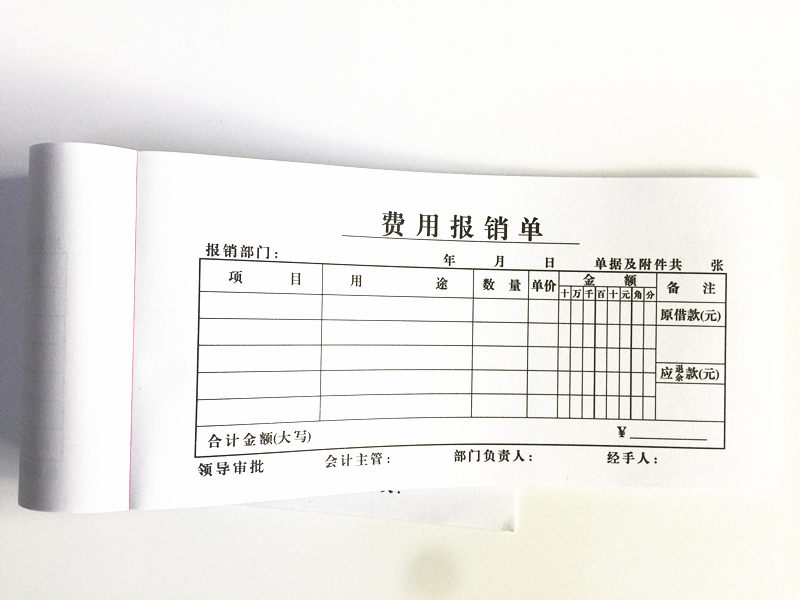 费用报销单
报销部门： 年 月 日 单据及附件共 张
项 目 用 途 数 量 单价 金 额 备 注
十 万 千 百 十 元 角 分
原借款(元)
应退余款(元)
合计金额(大写) ¥
领导审批 会计主管： 部门负责人： 经手人：